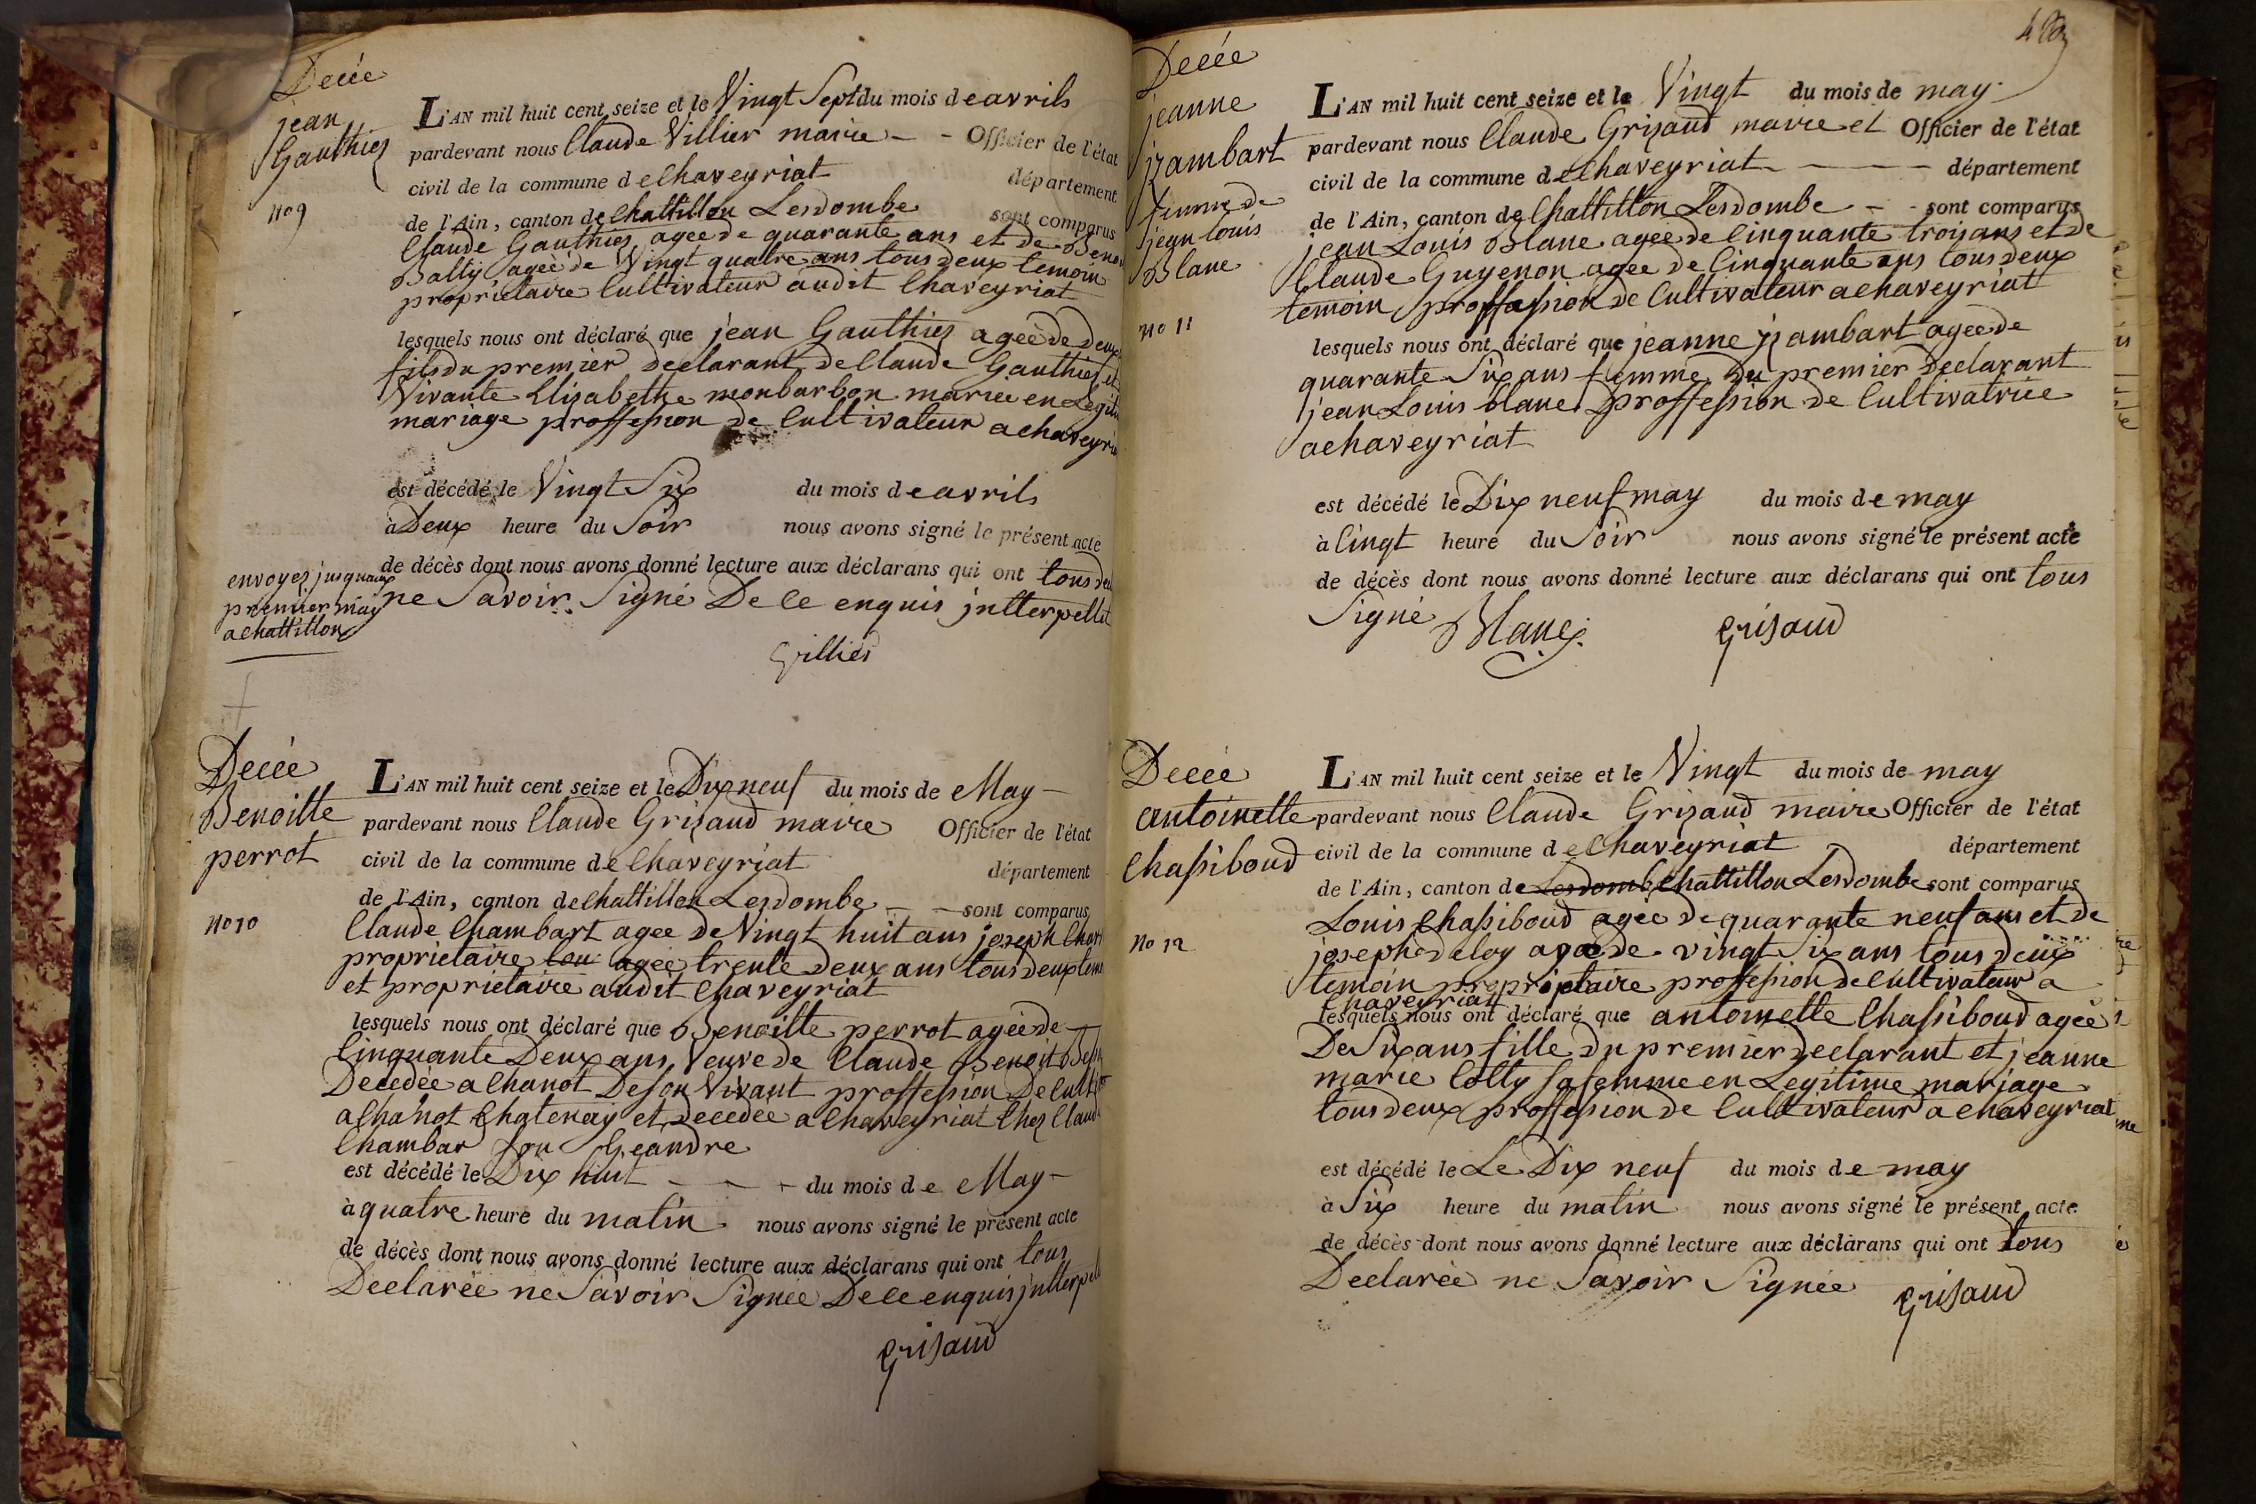 Decée
jean
Gauthier
No 9
L'AN mil huit cent seize et le Vingt Sept du mois de avrils
pardevant nous Claude Villier maire - - Officier de l'état
civil de la commune de Chaveyriat département
de l'Ain, canton de Chattillon Lesdombe sont comparus
Claude Gauthier agee de quarante ans et de
Batty ageè de Vingt quatre ans tous deux temoin
proprietaire Cultivateur audit Chaveyriat
lesquels nous ont déclaré que jean Gauthier ageè de deux
fils du premier declarant de Claude Gauthier et
Vivante Elisabethe monbarbon mariee en
mariage proffession de Cultivateur a
est décédé le Vingt Six du mois de avrils
à Deux heure du Soir nous avons signé le présent acte
de décès dont nous avons donné lecture aux déclarans qui ont tous
ne Savoir Signé De Ce enquis
envoyez jusquaux
premier may
a Chattillon
Villier
Decée
Benoitte
perrot
No 10
L'AN mil huit cent seize et le Dix neuf du mois de May
pardevant nous Claude Grizaud maire Officier de l'état
civil de la commune de Chaveyriat département
de l'Ain, canton de Chattillon Lesdombe - - sont comparus
Claude Chambart agee de Vingt huit ans joseph
proprietaire tou ageè trente deux ans tous deux
et proprietaire audit Chaveyriat
lesquels nous ont déclaré que Benoitte perrot ageè de
Cinquante Deux ans Veuve de Claude Benoit
Decedée a Chanot De son Vivant proffession De
a Chanot Chatenay et decedée a Chaveyriat Chez
Chambar Son Geandre
est décédé le Dix huit du mois de May
à quatre heure du matin nous avons signé le présent acte
de décès dont nous avons donné lecture aux déclarans qui ont tous
Declarèe ne Savoir Signee De Ce enquis
Grisaud
Decée
jeanne
jzambart
femme de
jean louis
Blanc
No 11
L'AN mil huit cent seize et le Vingt du mois de may
pardevant nous Claude Grizaud maire et Officier de l'état
civil de la commune de Chaveyriat département
de l'Ain, canton de Chattillon Lesdombe - - sont comparus
jean Louis Blanc agee de Cinquante trois ans et de
Claude Guyenon ageè de Cinquante ans tous deux
temoin proffassion de Cultivateur a chaveyriat
lesquels nous ont déclaré que jeanne jzambart agee de
quarante Six ans femme du premier declarant
jean Louis blanc proffession de Cultivatrice
a chaveyriat
est décédé le Dix neuf may du mois de may
à Cinqt heure du Soir nous avons signé le présent acte
de décès dont nous avons donné lecture aux déclarans qui ont tous
Signé Blanc Grisaud
Decée
antoinette
Chassiboud
No 12
L'AN mil huit cent seize et le Vingt du mois de may
pardevant nous Claude Grizaud maire Officier de l'état
civil de la commune de Chaveyriat département
de l'Ain, canton de Lesdomb Chattillon Lesdombe sont comparus
Louis Chassiboud ageè de quarante neuf ans et de
josephe deloy agee de vingt Six ans tous deux
temoin proprietaire proffession de Cultivateur a
Chaveyriat
lesquels nous ont déclaré que antoinette Chassiboud ageè
De Six ans fille du premier declarant et jeanne
marie Cotty Sa femme en Legitime mariage
tous deux proffession de Cultivateur a chaveyriat
est décédé le Le Dix neuf du mois de may
à Six heure du matin nous avons signé le présent acte
de décès dont nous avons donné lecture aux déclarans qui ont tous
Declarèe ne Savoir Signée Grisaud